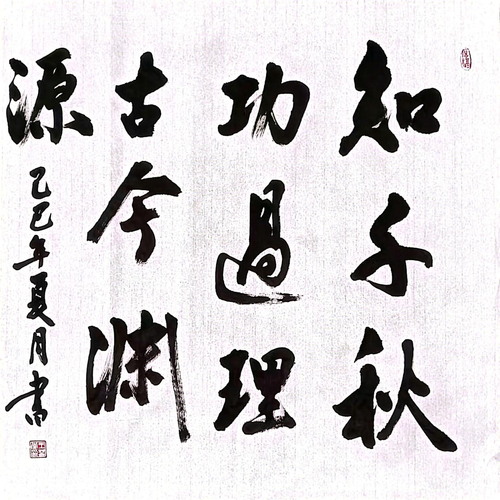 知千秋
功過理
古今渊
源
乙巳年夏月书